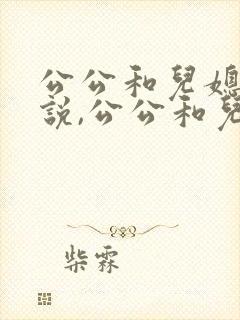 公公和兒媳
說,公公和兒
柴霖